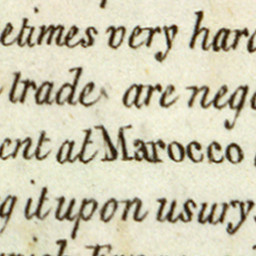 etimes very hard
trade are neg
ent at Marocco
g it upon usury.